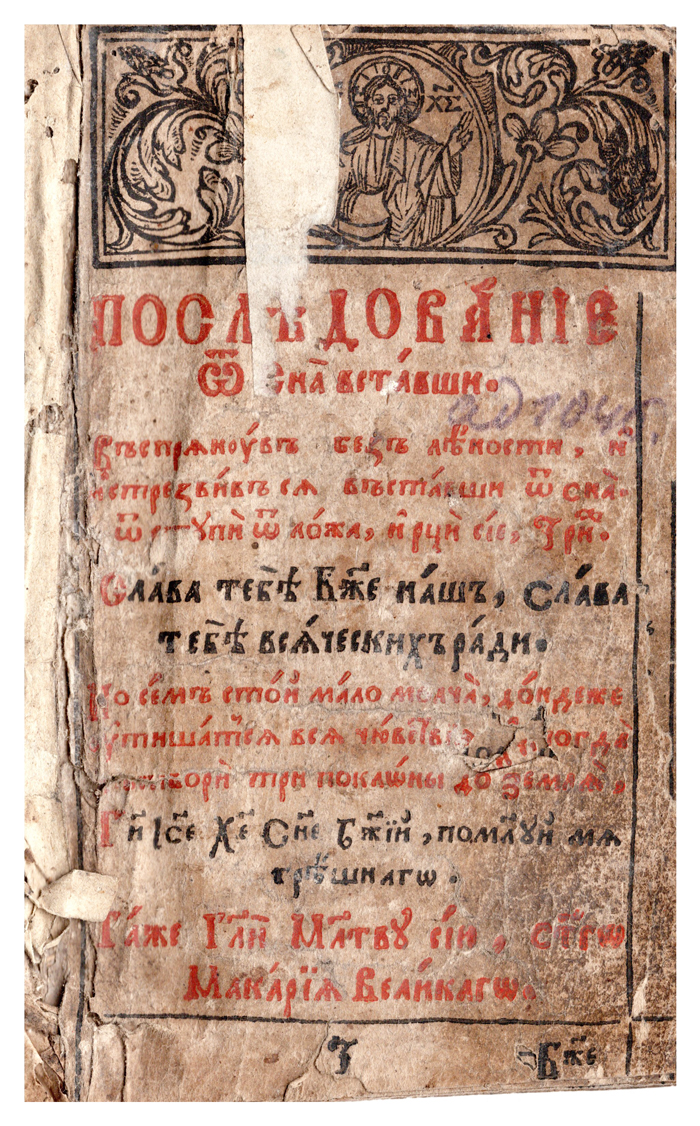 ХС҃
ПОСЛѢ́ДОВА́НІЕ
Ѿ Сна̀ вста́вши.
Въспрѧноу́въ безъ лѣ́ности, и҆
и҆стрезви́въ сѧ въста́вши ѿ сна̀.
ѿстꙋпѝ ѿ ло́жа, и҆ рцѝ сїе, Три.
Сла́ва тебѣ̀ Бж҃е на́шъ, сла́ва
тебѣ̀ всѧ́ческихъ ра́ди.
По се́мъ сто́и ма́ло молча̀, до́ндеже
ᲂу҆тиша́тсѧ всѧ чю́вствїѧ
сотворѝ три поклѡ́ны до землѧ̀,
Гд҇и І҆с҃е Хе҃ Сн҃е Бж҃їи, поми́лꙋи мѧ
грѣ́шнагѡ.
Та́же Гл҃и Мл҃твꙋ сїю, ст҃гѡ
Мака́рїѧ Вели́кагѡ.
Бж҃е